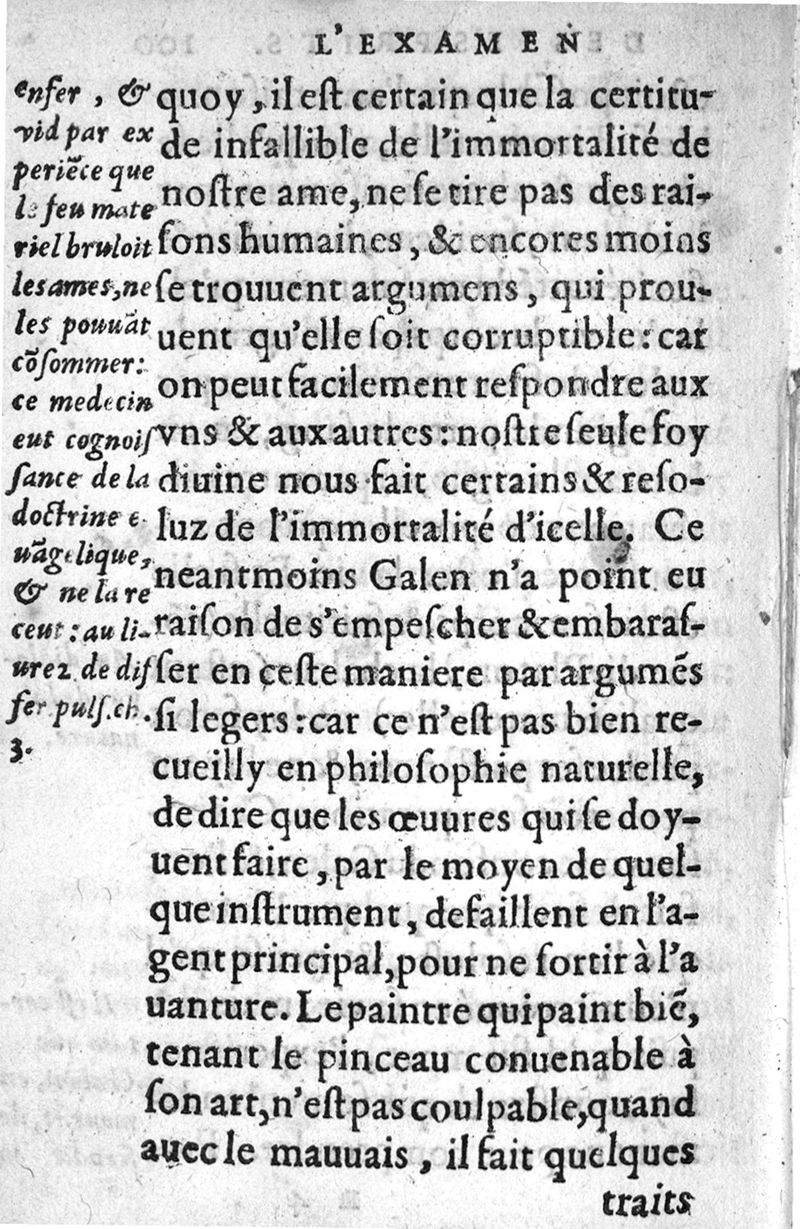 L'EXAMEN
enfer, &
vid par ex
periẽce que
le feu mate
riel bruloit
les ames, ne
les pouuãt
cõsommer:
ce medecin
eut cognoiſ
ſance de la
doctrine e
uãgelique,
& ne la re
ceut: au li-
ure 2. de dif
fer pulſ. ch.
3.
quoy, il eſt certain que la certitu-
de infallible de l'immortalité de
noſtre ame, ne ſe tire pas des rai-
ſons humaines, & encores moins
ſe trouuent argumens, qui prou-
uent qu'elle ſoit corruptible: car
on peut facilement reſpondre aux
vns & aux autres: noſtre ſeule foy
diuine nous fait certains & reſo-
luz de l'immortalité d'icelle. Ce
neantmoins Galen n'a point eu
raiſon de s'empeſcher & embaraſ-
ſer en ceſte maniere par argumẽs
ſi legers: car ce n'eſt pas bien re-
cueilly en philoſophie naturelle,
de dire que les œuures qui ſe doy-
uent faire, par le moyen de quel-
que inſtrument, defaillent en l'a-
gent principal, pour ne ſortir à l'a
uanture. Le paintre qui paint biẽ,
tenant le pinceau conuenable à
ſon art, n'eſt pas coulpable, quand
auec le mauuais, il fait quelques
traits